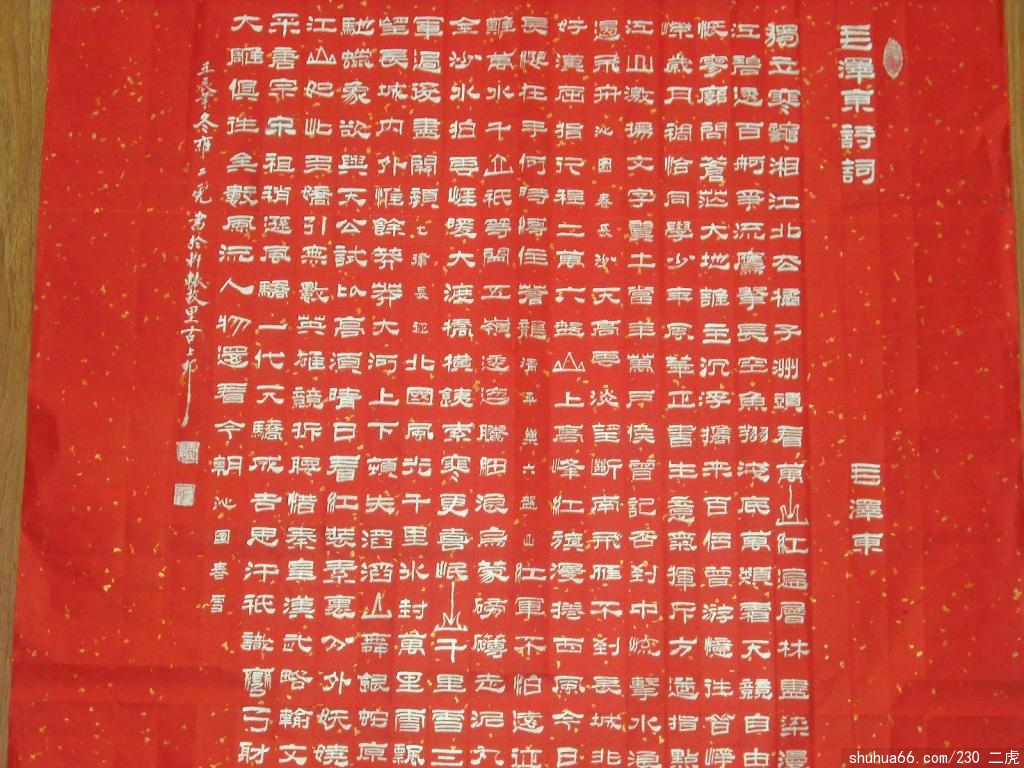 毛澤東詩詞
毛澤東
獨立寒龝湘江北去橘子洲頭看萬山紅遍層林盡染漫
江碧透百舸爭流鷹擊長空魚翔淺底萬類霜天競自由
悵寥廓問蒼茫大地誰主沉浮攜來百侶曾游憶往昔崢
嶸歲月稠恰同學少年風華正書生意氣揮斥方遒指點
江山激揚文字糞土當年萬戶侯曾記否到中流擊水浪
遏飛舟 沁園春長沙 天高雲淡望斷南飛雁不到長城非
好漢屈指行程二萬六盤山上高峰紅旗漫捲西風今日
長纓在手何時縛住蒼龍 清平樂六盤山 紅軍不怕遠征
難萬水千山祇等閒五嶺逶迤騰細浪烏蒙磅礴走泥丸
金沙水拍雲崖暖大渡橋橫鐵索寒更喜岷山千里雪三
軍過後盡開顏 七律長征 北國風光千里冰封萬里雪飄
望長城內外惟餘莽莽大河上下頓失滔滔山舞銀蛇原
馳蠟象欲與天公試比高須晴日看紅裝素裹分外妖嬈
江山如此多嬌引無數英雄競折腰惜秦皇漢武略輸文
采唐宗宋祖稍遜風騷一代天驕成吉思汗祇識彎弓射
大雕俱往矣數風流人物還看今朝 沁園春雪
冬 二虎書於 故里古上
shuhua66.com/230 二虎